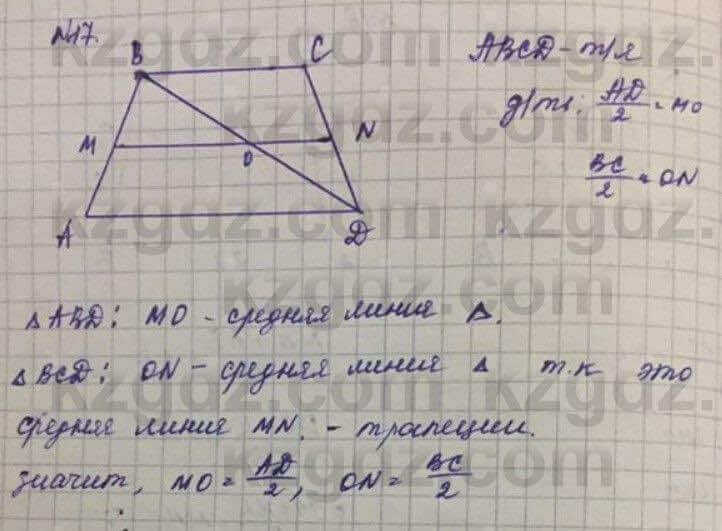 №17.
B
C
M
N
O
A
D
ABCD - т/я
д/ть: AD/2 = MO
BC/2 = ON
△ABD: MO - средняя линия △.
△BCD: ON - средняя линия △ т.к это
средняя линия MN. - трапеции.
значит, MO = AD/2, ON = BC/2
kzgdz.com